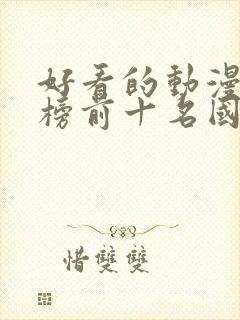 好看的動漫
榜前十名國
惜雙雙